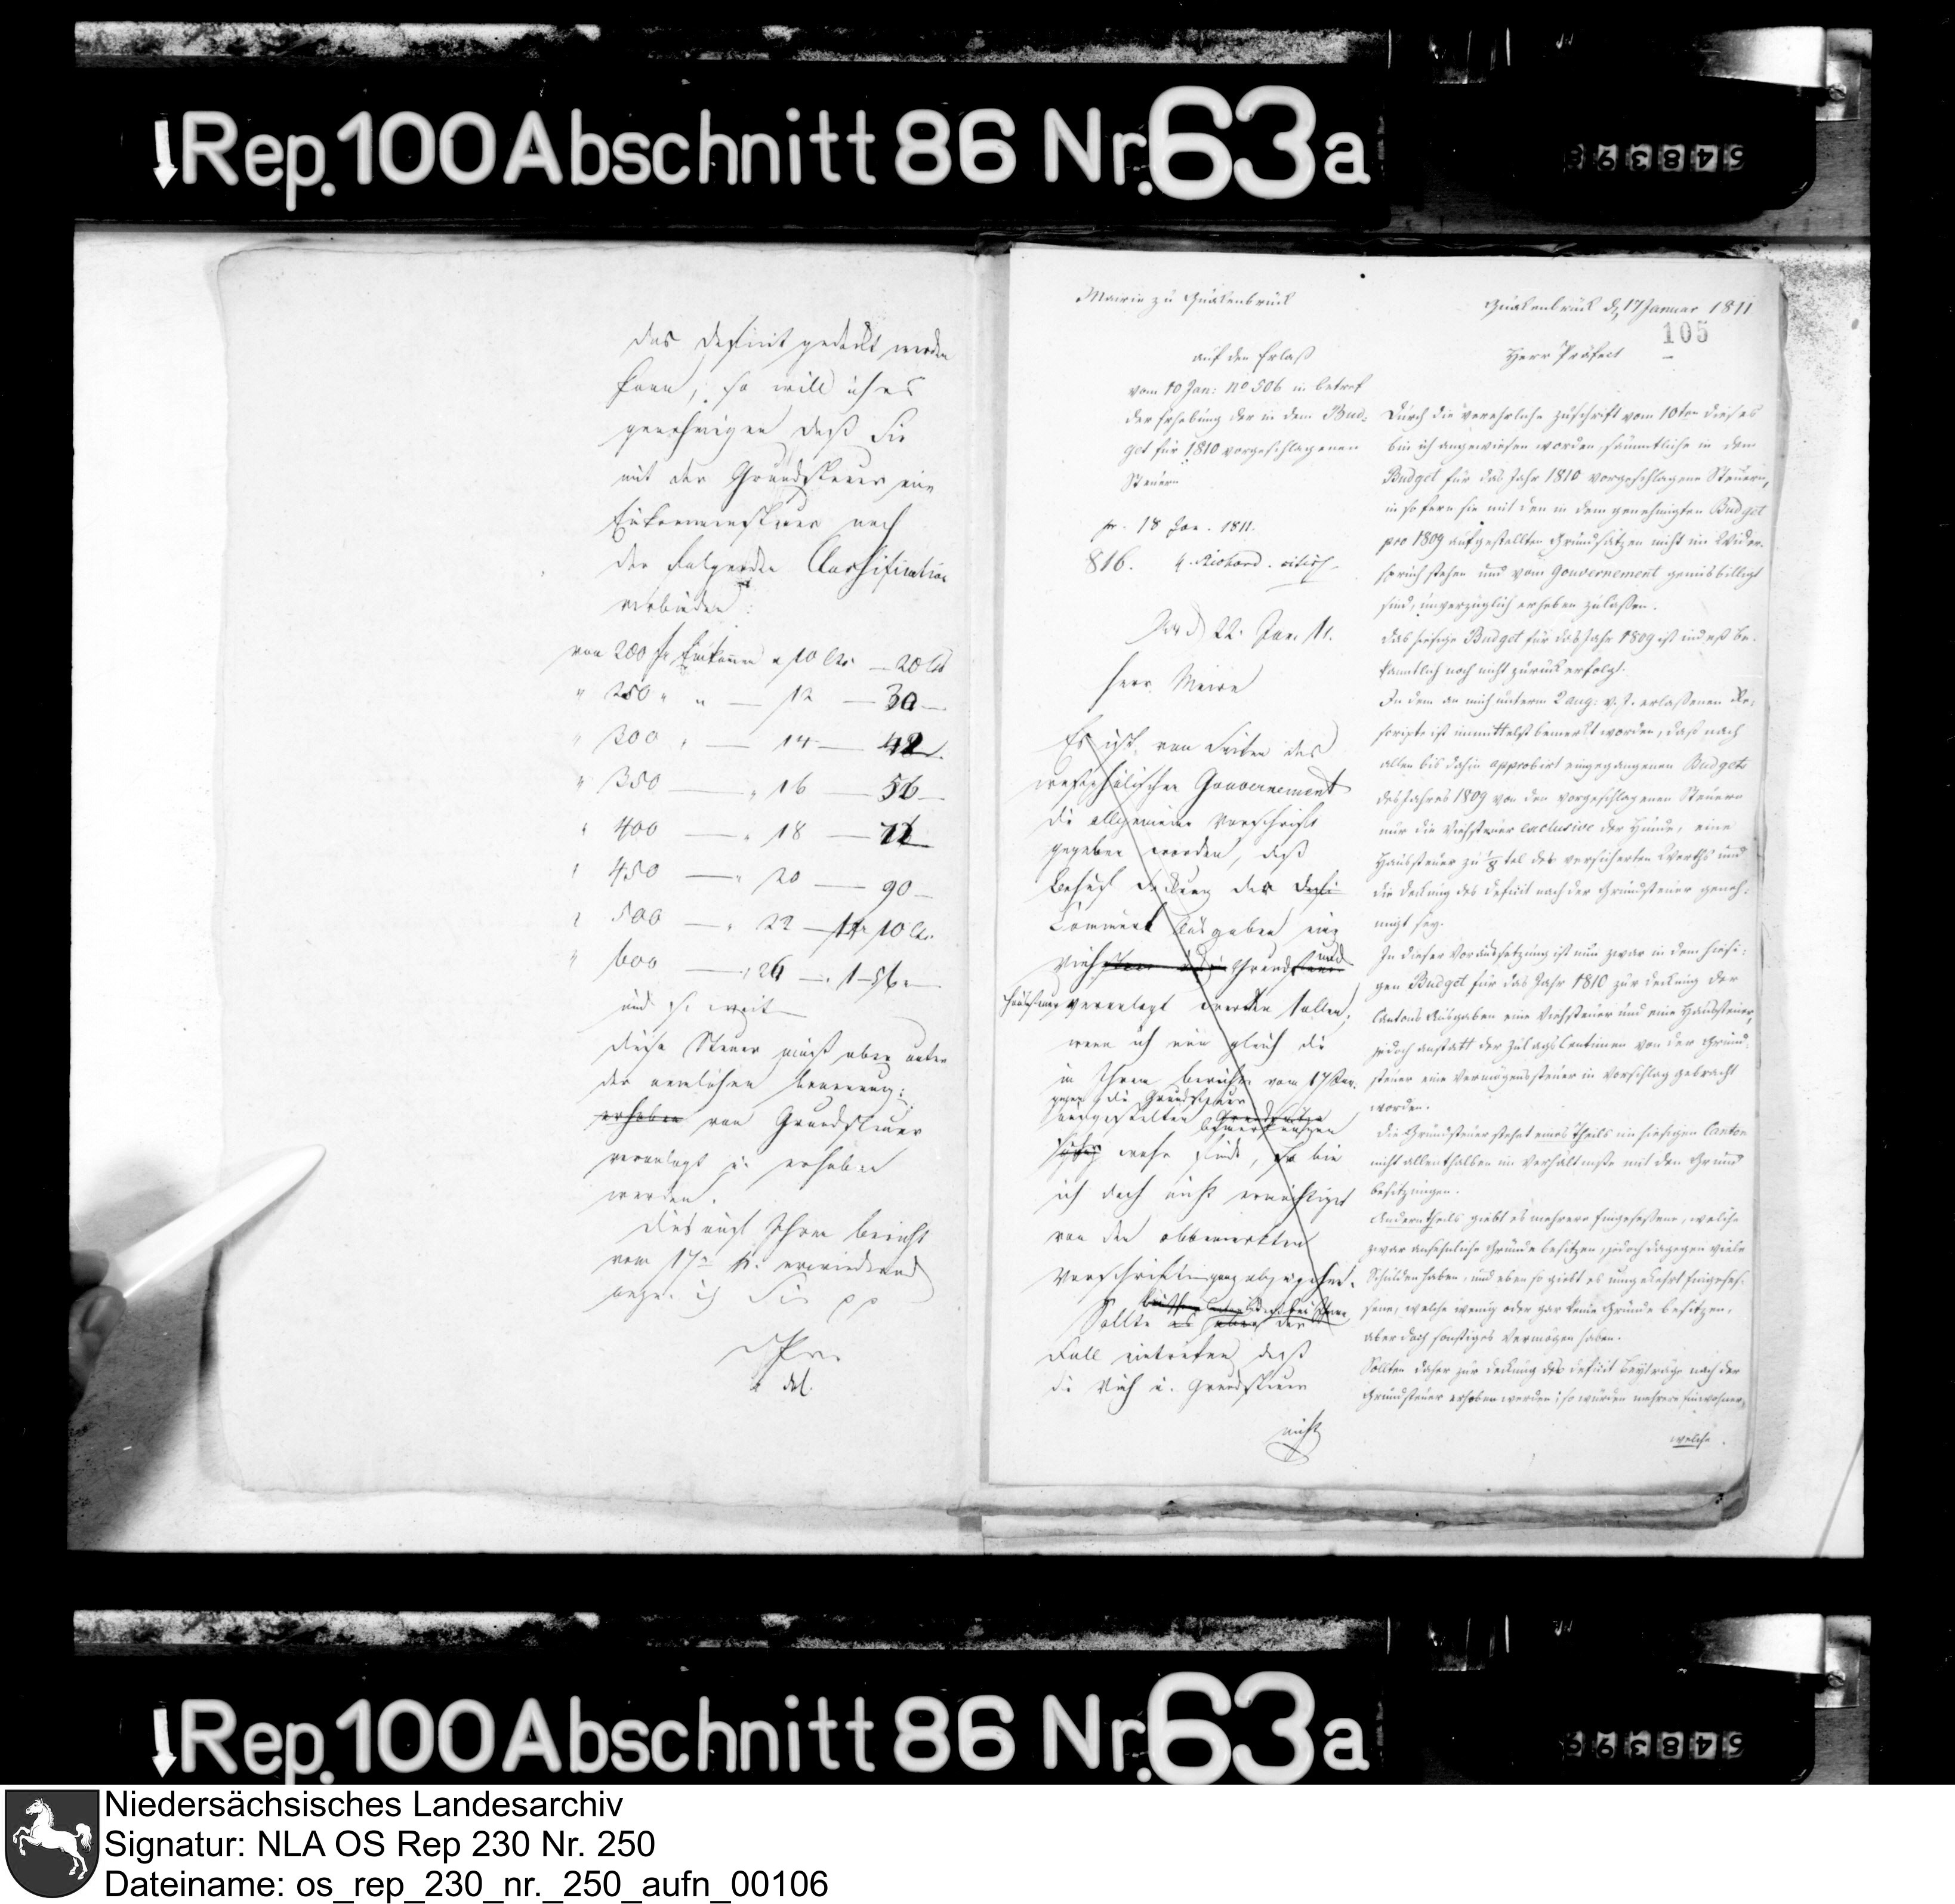 Rep. 100 Abschnitt 86 Nr. 63a
das Deficit gedeckt werden
kann, so will ich es
genehmigen daß Sie
mit der Grundsteuer eine
Einkommensteuer nach
der folgenden Classification
verbinden:
von 200 fr Einkommen a 10 Cts — 20 Cts
" 250 " " — 12 — 30 —
" 300 " — 14 — 42
" 350 — " 16 — 56 —
" 400 — " 18 — 72
" 450 — " 20 — 90 —
" 500 — " 22 — 1 fr 10 Cts.
" 600 — " 26 — 1 — 56 —
und so weit
Diese Steuer muß aber unter
der nemlichen Benennung
erhoben von Grundsteuer
veranlagt u. erhoben
werden.
Dies auf Ihren Bericht
vom 17ten h. erwiedernd
Sie pp
105
Mairie zu Quakenbrück
auf den Erlaß
vom 10 Jan: No 506 in betref
der Erhebung der in dem Bud-
get für 1810 vorgeschlagenen
Steuern
pr. 18 Jan. 1811.
816.
22. Jan. 11.
Herr Maire
Es ist von Seiten des
westphälischen Gouvernement
die allgemeine Vorschrift
gegeben worden, daß
behuf Deckung der
Ausgaben eine
Vieh und
Haussteuer veranlagt werden sollen;
wenn ich nun gleich die
in Ihrem Bericht vom 17 Jan.
gegen die Grundsteuer
aufgestellten Bemerkungen
wahr finde, so bin
ich doch nicht ermächtiget
von den obbemerkten
Vorschriften ganz abzugehen.
Sollte der
Fall eintreten daß
die Vieh u. Grundsteuer
nicht
Quakenbrück d. 17 Januar 1811
Herr Präfect
Durch die verehrliche Zuschrift vom 10ten dieses
bin ich angewiesen worden, sämmtliche in dem
Budget für das Jahr 1810 vorgeschlagene Steuern,
in so fern sie mit den in dem genehmigten Budget
pro 1809 aufgestellten Grundsätzen nicht im Wider-
spruch stehen und vom Gouvernement gemisbilligt
sind, unverzüglich erheben zu laßen.
Das hiesige Budget für das Jahr 1809 ist indeß be-
kanntlich noch nicht zurück erfolgt.
In dem an mich unterm 2 Aug: v. J. erlaßenen Re-
scripte ist inmittelst bemerkt worden, daß nach
allen bis dahin approbirt eingegangenen Budgets
des Jahres 1809 von den vorgeschlagenen Steuern
nur die Viehsteuer exclusive der Hunde, eine
Haussteuer zu 1/8 tel des versicherten Werths und
die Deckung des Deficit nach der Grundsteuer geneh-
migt sey.
In dieser Voraussetzung ist nun zwar in dem hiesi-
gen Budget für das Jahr 1810 zur Deckung der
Cantons Ausgaben eine Viehsteuer und eine Haussteuer,
jedoch anstatt der Zulags Centimen von der Grund-
steuer eine Vermögenssteuer in Vorschlag gebracht
worden.
Die Grundsteuer stehet eines Theils im hiesigen Canton
nicht allenthalben im Verhältniße mit den Grund
besitzungen.
Anderntheils giebt es mehrere Eingeseßene, welche
zwar ansehnliche Gründe besitzen, jedoch dagegen viele
Schulden haben, und eben so giebt es umgekehrt Eingeseß-
sene, welche wenig oder gar keine Gründe besitzen,
aber doch sonstiges Vermögen haben.
Sollten daher zur Deckung des Deficit Beyträge nach der
Grundsteuer erhoben werden; so würden mehrere Einwohner,
welche
Rep. 100 Abschnitt 86 Nr. 63a
Niedersächsisches Landesarchiv
Signatur: NLA OS Rep 230 Nr. 250
Dateiname: os_rep_230_nr._250_aufn_00106